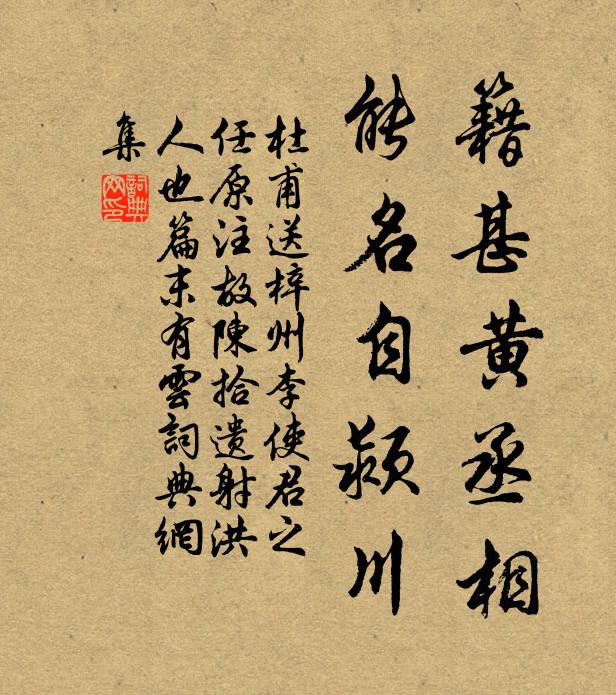 籍甚黄丞相
能名自颍川
杜甫送梓州李使君之
任原注故陳拾遗射洪
人也篇末有雲詞典網
集
詞典
网印